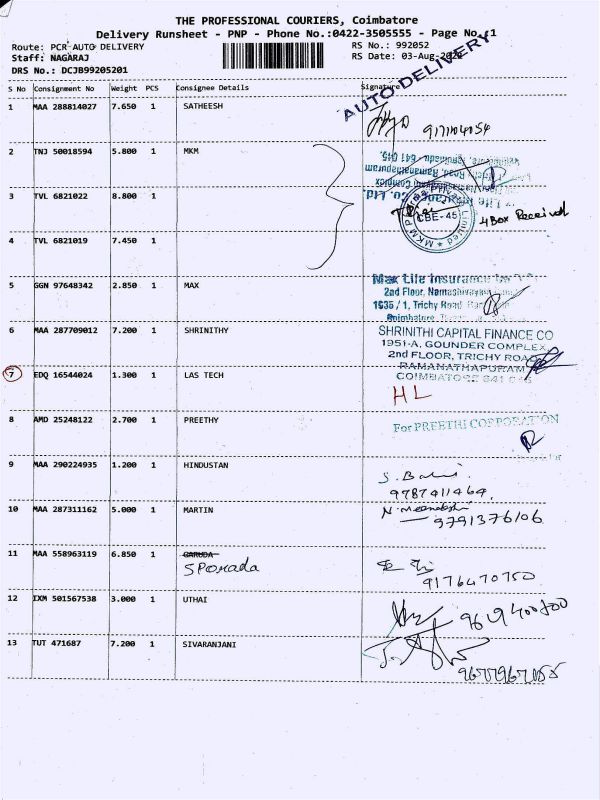 THE PROFESSIONAL COURIERS, Coimbatore
Delivery Runsheet - PNP - Phone No.:0422-3505555 - Page No. 1
Route: PCR-AUTO DELIVERY RS No.: 992052
Staff: NAGARAJ RS Date: 03-Aug-
DRS No.: DCJB99205201
AUTO DELIVERY
S No Consignment No Weight PCS Consignee Details Signature
1 MAA 288814027 7.650 1 SATHEESH
2 TNJ 50018594 5.800 1 MKM
3 TVL 6821022 8.800 1
CBE-45
4 Box Received
4 TVL 6821019 7.450 1
5 GGN 97648342 2.850 1 MAX
Max Life Insurance
2nd Floor,
1635 / 1, Trichy Road
6 MAA 287709012 7.200 1 SHRINITHY
SHRINITHI CAPITAL FINANCE CO
1951-A, GOUNDER COMPLEX
2nd FLOOR, TRICHY ROAD
RAMANATHAPURAM
COIMBATORE 641
7 EDQ 16544024 1.300 1 LAS TECH
HL
8 AMD 25248122 2.700 1 PREETHY
For PREETHI CORPORATION
9 MAA 290224935 1.200 1 HINDUSTAN
9787411464
10 MAA 287311162 5.000 1 MARTIN
9791376106
11 MAA 558963119 6.850 1 GARUDA
SPorada
9176470750
12 IXM 501567538 3.000 1 UTHAI
13 TUT 471687 7.200 1 SIVARANJANI